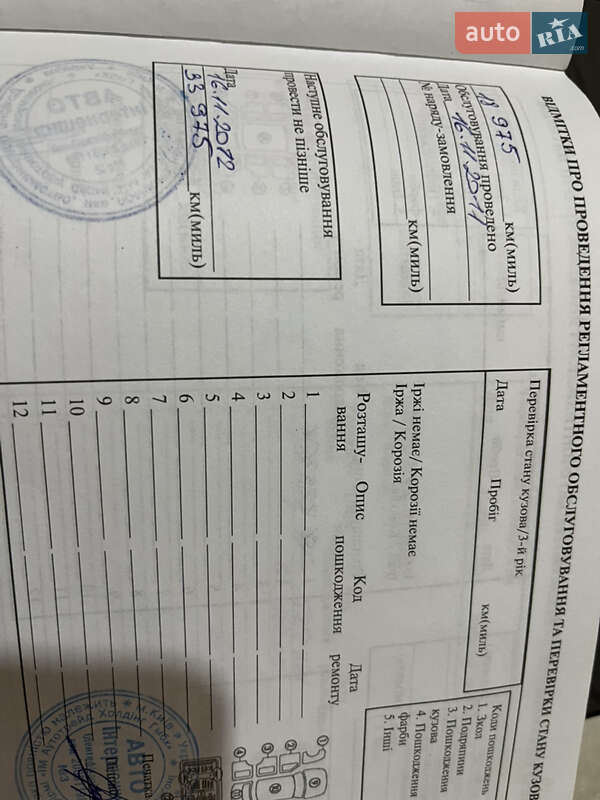 auto RIA .com
ВІДМІТКИ ПРО ПРОВЕДЕННЯ РЕГЛАМЕНТНОГО ОБСЛУГОВУВАННЯ ТА ПЕРЕВІРКИ СТАНУ КУЗОВ
18 975 км(миль)
Обслуговування проведено
Дата 16.11.2011
№ наряду-замовлення
км(миль)
Наступне обслуговування
провести не пізніше
Дата 16.11.2012
33 975 км(миль)
Перевірка стану кузова/3-й рік
Дата Пробіг км(миль)
Іржі немає/ Корозії немає
Іржа / Корозія
Розташу- Опис Код Дата
вання пошкодження ремонту
1
2
3
4
5
6
7
8
9
10
11
12
Коди пошкоджень
1. Зкол
2. Подряпини
3. Пошкодження
кузова
4. Пошкодження
фарби
5. Інші
Печатка
АВТО
АВТО